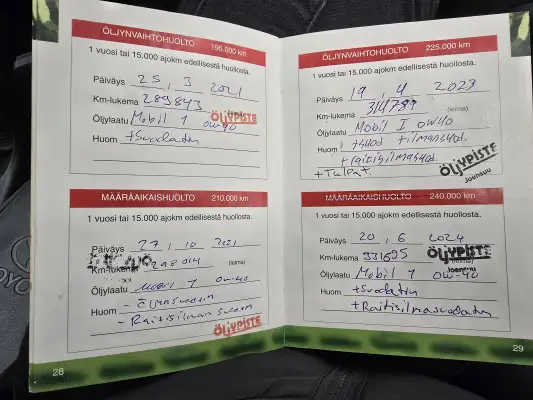 ÖLJYNVAIHTOHUOLTO 195.000 km
1 vuosi tai 15.000 ajokm edellisestä huollosta.
Päiväys 25 . 3 2021
Km-lukema 289843
Öljylaatu Mobil 1 0W-40
ÖLJYPISTE
Huom +Suodatin
MÄÄRÄAIKAISHUOLTO 210.000 km
1 vuosi tai 15.000 ajokm edellisestä huollosta.
Päiväys 27 . 10 2021
Km-lukema 298014 (leima)
Öljylaatu Mobil 1 0W-40
Huom - Öljynsuodatin
- Raitisilman suodatin
ÖLJYPISTE
28
ÖLJYNVAIHTOHUOLTO 225.000 km
1 vuosi tai 15.000 ajokm edellisestä huollosta.
Päiväys 19 . 4 2023
Km-lukema 314799 (leima)
Öljylaatu Mobil 1 0W40
Huom +suod +ilmansuod.
+raitisilmasuod.
+Tulpat
ÖLJYPISTE
Joensuu
MÄÄRÄAIKAISHUOLTO 240.000 km
1 vuosi tai 15.000 ajokm edellisestä huollosta.
Päiväys 20 . 6 2024
Km-lukema 331695 (leima)
ÖLJYPISTE
Joensuu
Öljylaatu Mobil 1 0W-40
Huom +Suodatin
+Raitisilmasuodatin
29